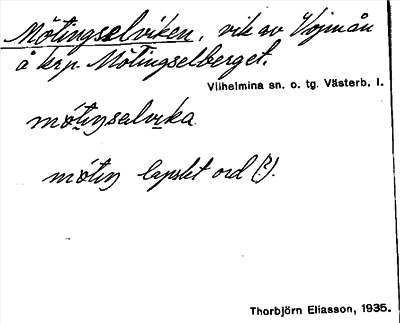 Mötingselviken, vik av Vojmån
å krp Mötingselberget.
Vilhelmina sn. o. tg. Västerb. l.
mötiŋsəlvika
mötiŋ lapskt ord (?).
Thorbjörn Eliasson, 1935.